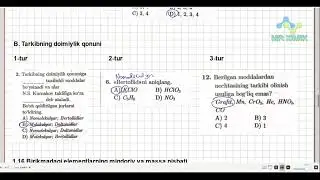 C) 2, 4
D) 1, 2, 3, 4
B. Tarkibning doimiylik qonuni
1-tur
2-tur
3-tur
2. Tarkibning doimiylik qonuniga
tuzilishli moddalar
bo'ysinadi va ular
N.S. Kurnakov taklifiga ko'ra
deb ataladi.
Bo'sh qoldirilgan joylarni
to'ldiring.
A) Nomolekulyar; Bertollidlar
B) Molekulyar; Daltonidlar
C) Nomolekulyar; Daltonidlar
D) Molekulyar; Bertollidlar
6.
«Bertollid»ni aniqlang.
A) HClO
B) HClO₃
C) C₂H₆
D) NO₂
12. Berilgan moddalardan
nechtasining tarkibi olinish
usuliga bog'liq emas?
Grafit, Mn, CrO₃, He, HNO₃,
CO
A) 2
B) 3
C) 4
D) 1
1.16 Birikmadagi elementlarning miqdoriy va massa nisbati